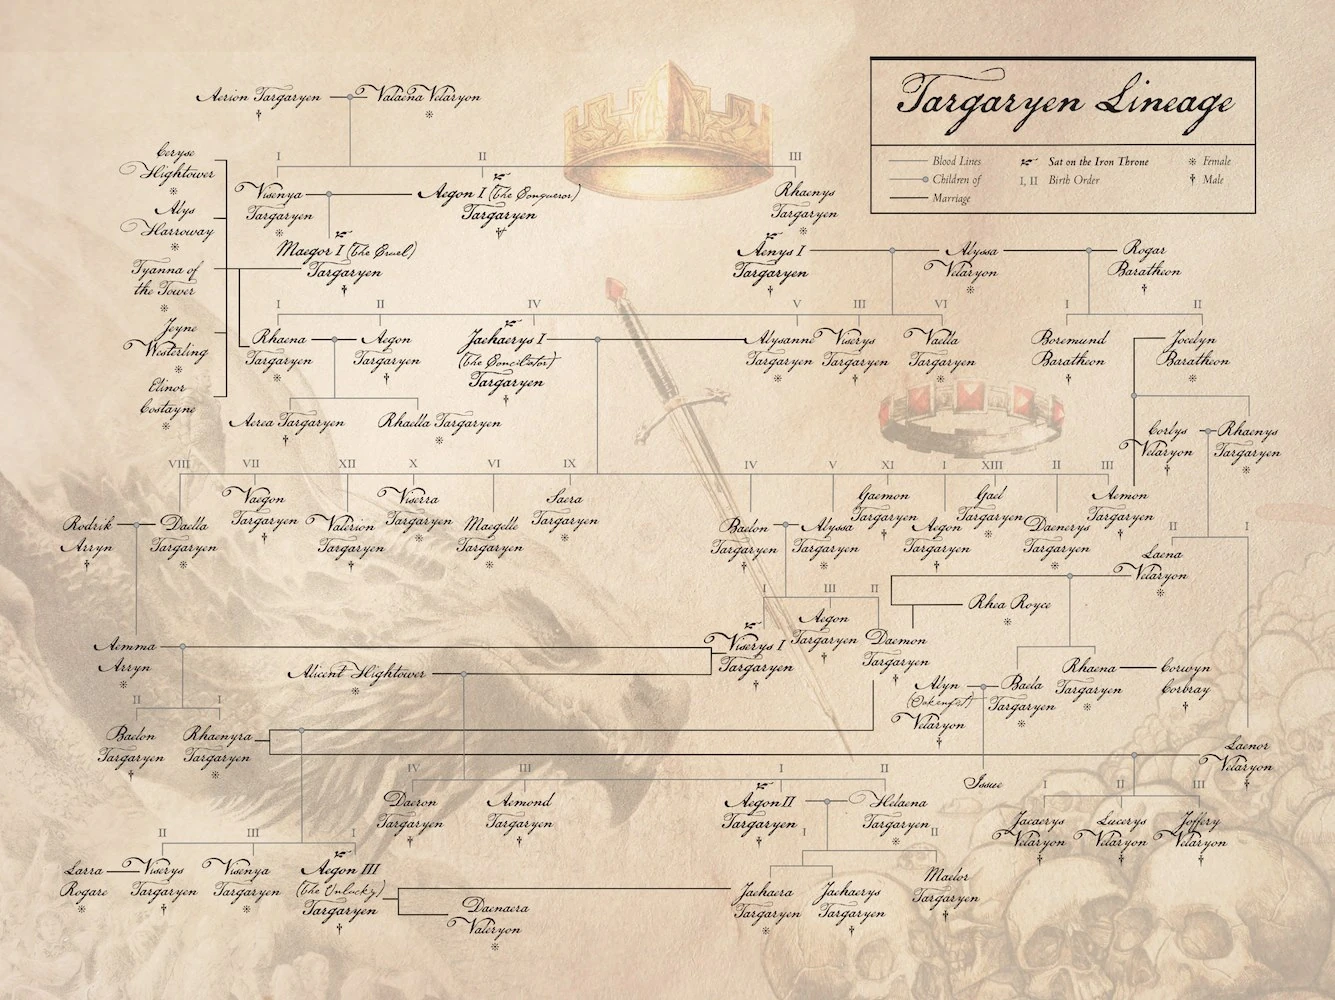 Targaryen Lineage
Blood Lines
Children of
Marriage
Sat on the Iron Throne
I, II Birth Order
Female
Male
Aerion Targaryen
Valaena Velaryon
I
II
III
Ceryse
Hightower
Alys
Harroway
Tyanna of
the Tower
Jeyne
Westerling
Elinor
Costayne
Visenya
Targaryen
Aegon I (The Conqueror)
Targaryen
Rhaenys
Targaryen
Maegor I (The Cruel)
Targaryen
Aenys I
Targaryen
Alyssa
Velaryon
Rogar
Baratheon
I
II
IV
V
III
VI
I
II
Rhaena
Targaryen
Aegon
Targaryen
Jaehaerys I
(The Conciliator)
Targaryen
Alysanne
Targaryen
Viserys
Targaryen
Vaella
Targaryen
Boremund
Baratheon
Jocelyn
Baratheon
Aerea Targaryen
Rhaella Targaryen
Corlys
Velaryon
Rhaenys
Targaryen
VIII
VII
XII
X
VI
IX
IV
V
XI
I
XIII
II
III
Rodrik
Arryn
Daella
Targaryen
Vaegon
Targaryen
Valerion
Targaryen
Viserra
Targaryen
Maegelle
Targaryen
Saera
Targaryen
Baelon
Targaryen
Alyssa
Targaryen
Gaemon
Targaryen
Aegon
Targaryen
Gael
Targaryen
Daenerys
Targaryen
Aemon
Targaryen
II
I
Laena
Velaryon
I
III
II
Rhea Royce
Aemma
Arryn
Alicent Hightower
Viserys I
Targaryen
Aegon
Targaryen
Daemon
Targaryen
Alyn
(Oakenfist)
Velaryon
Baela
Targaryen
Rhaena
Targaryen
Corwyn
Corbray
II
I
Baelon
Targaryen
Rhaenyra
Targaryen
Laenor
Velaryon
IV
III
I
II
Issue
I
II
III
Daeron
Targaryen
Aemond
Targaryen
Aegon II
Targaryen
Helaena
Targaryen
Jacaerys
Velaryon
Lucerys
Velaryon
Joffery
Velaryon
II
III
I
I
II
Larra
Rogare
Viserys
Targaryen
Visenya
Targaryen
Aegon III
(The Unlucky)
Targaryen
Daenaera
Valeryon
Jaehaera
Targaryen
Jaehaerys
Targaryen
Maelor
Targaryen